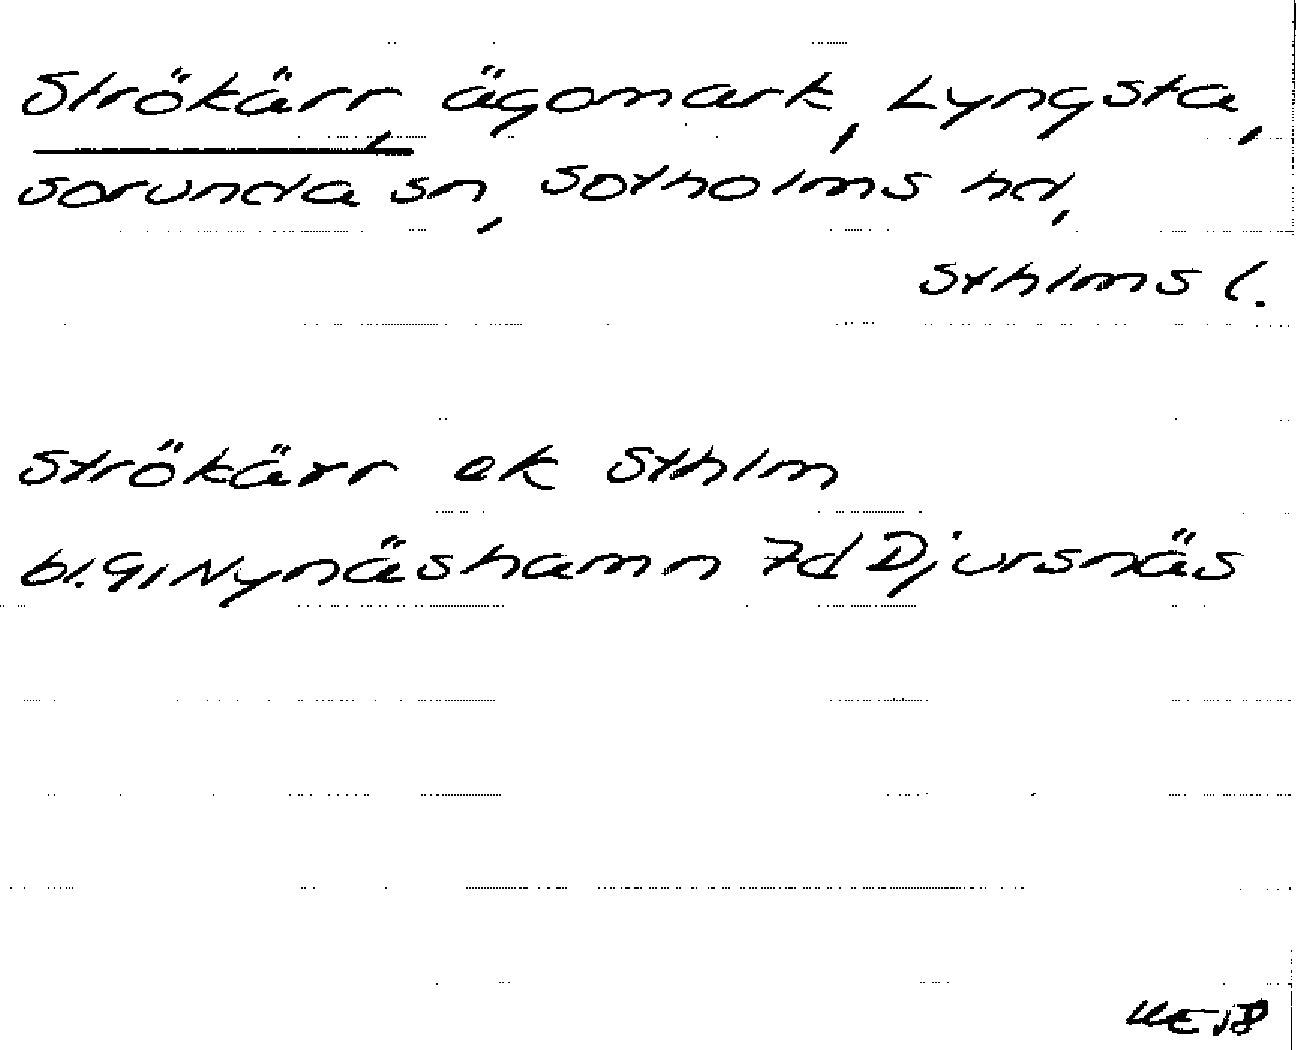 Strökärr, ägomark, Lyngsta,
Sorunda sn, Sotholms hd,
Sthlms l.
Strökärr ek Sthlm
bl. 9I Nynäshamn 7d Djursnäs